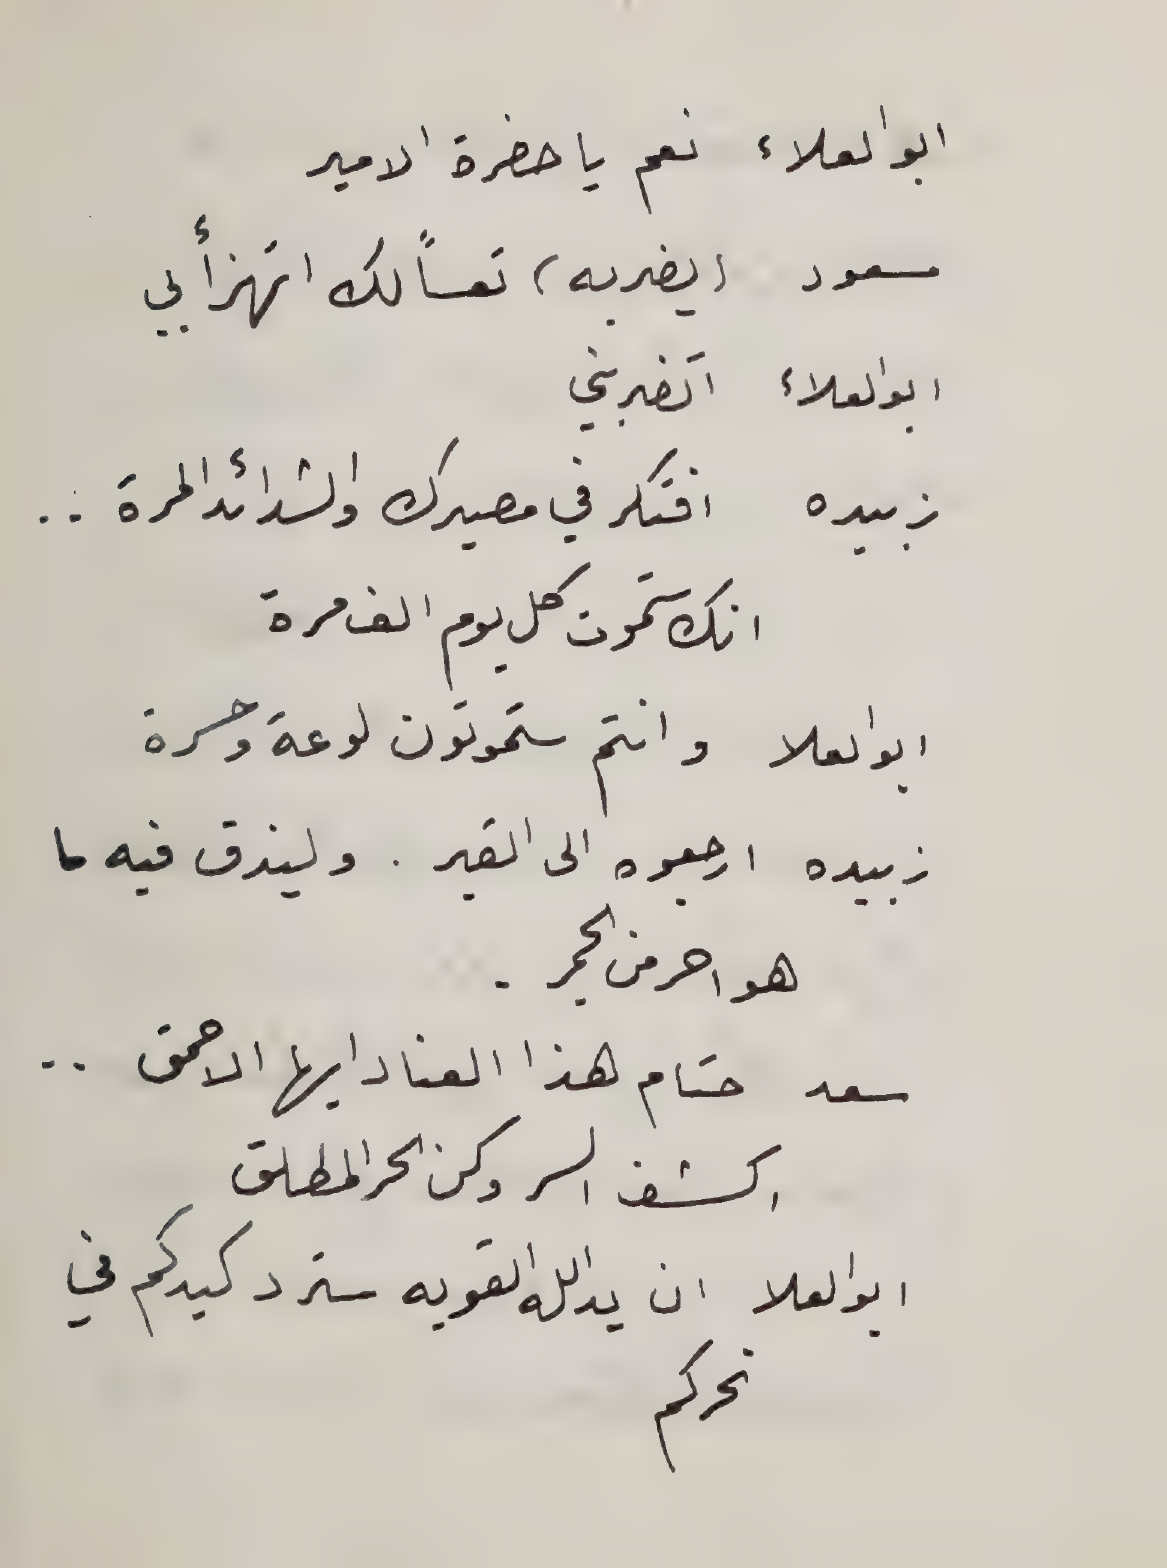 ابوالعلاء نعم يا حضرة الامير
مسعود (يضربه) تعساً لك اتهزأ بي
ابوالعلاء اتضربني
زبيده افتكر في مصيرك والشدائد المرة ..
انك ستموت كل يوم الف مرة
ابوالعلا وانتم ستموتون لوعة وحسرة
زبيده ارجعوه الى القبر . وليذق فيه ما
هو احر من الجمر .
سعد حتام هذا العناد ايها الاحمق ..
اكشف السر وكن الحر المطلق
ابوالعلا ان يد الله القويه سترد كيدكم في
نحركم